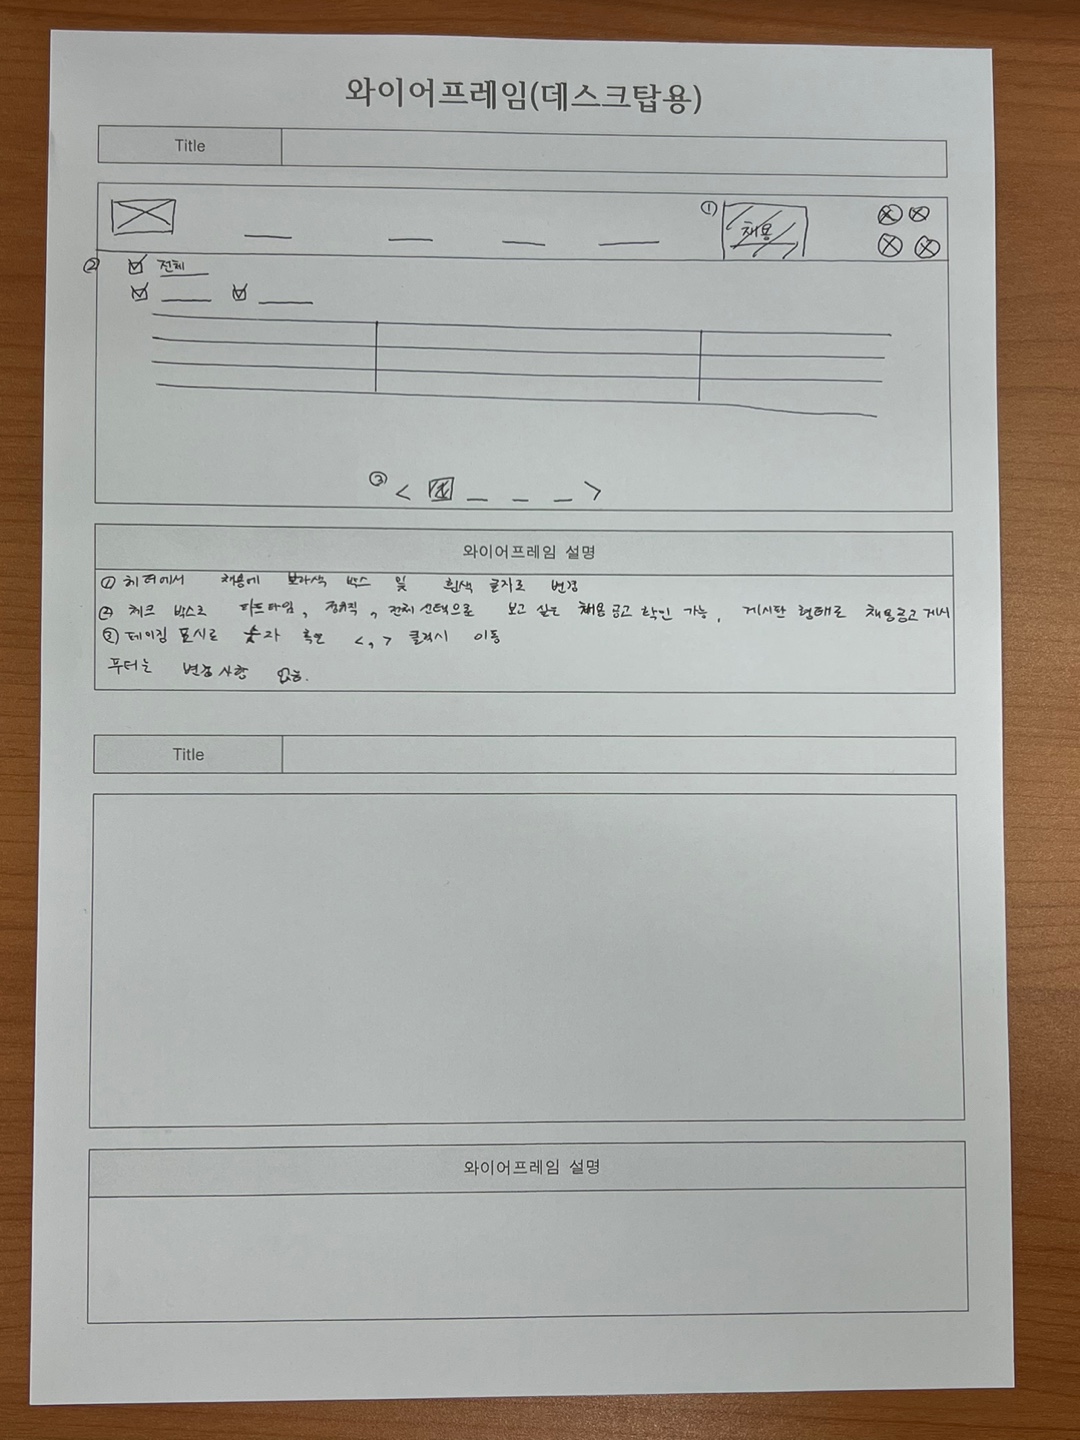 와이어프레임(데스크탑용)
Title
① 채용
② 전체
③ < 1 >
와이어프레임 설명
① 헤더에서 채용에 보라색 박스 및 흰색 글자로 변경
② 체크 박스로 파트타임, 정규직, 전체 선택으로 보고 싶은 채용공고 확인 가능, 게시판 형태로 채용공고 게시
③ 페이징 표시로 숫자 혹은 <, > 클릭시 이동
푸터는 변경 사항 없음.
Title
와이어프레임 설명